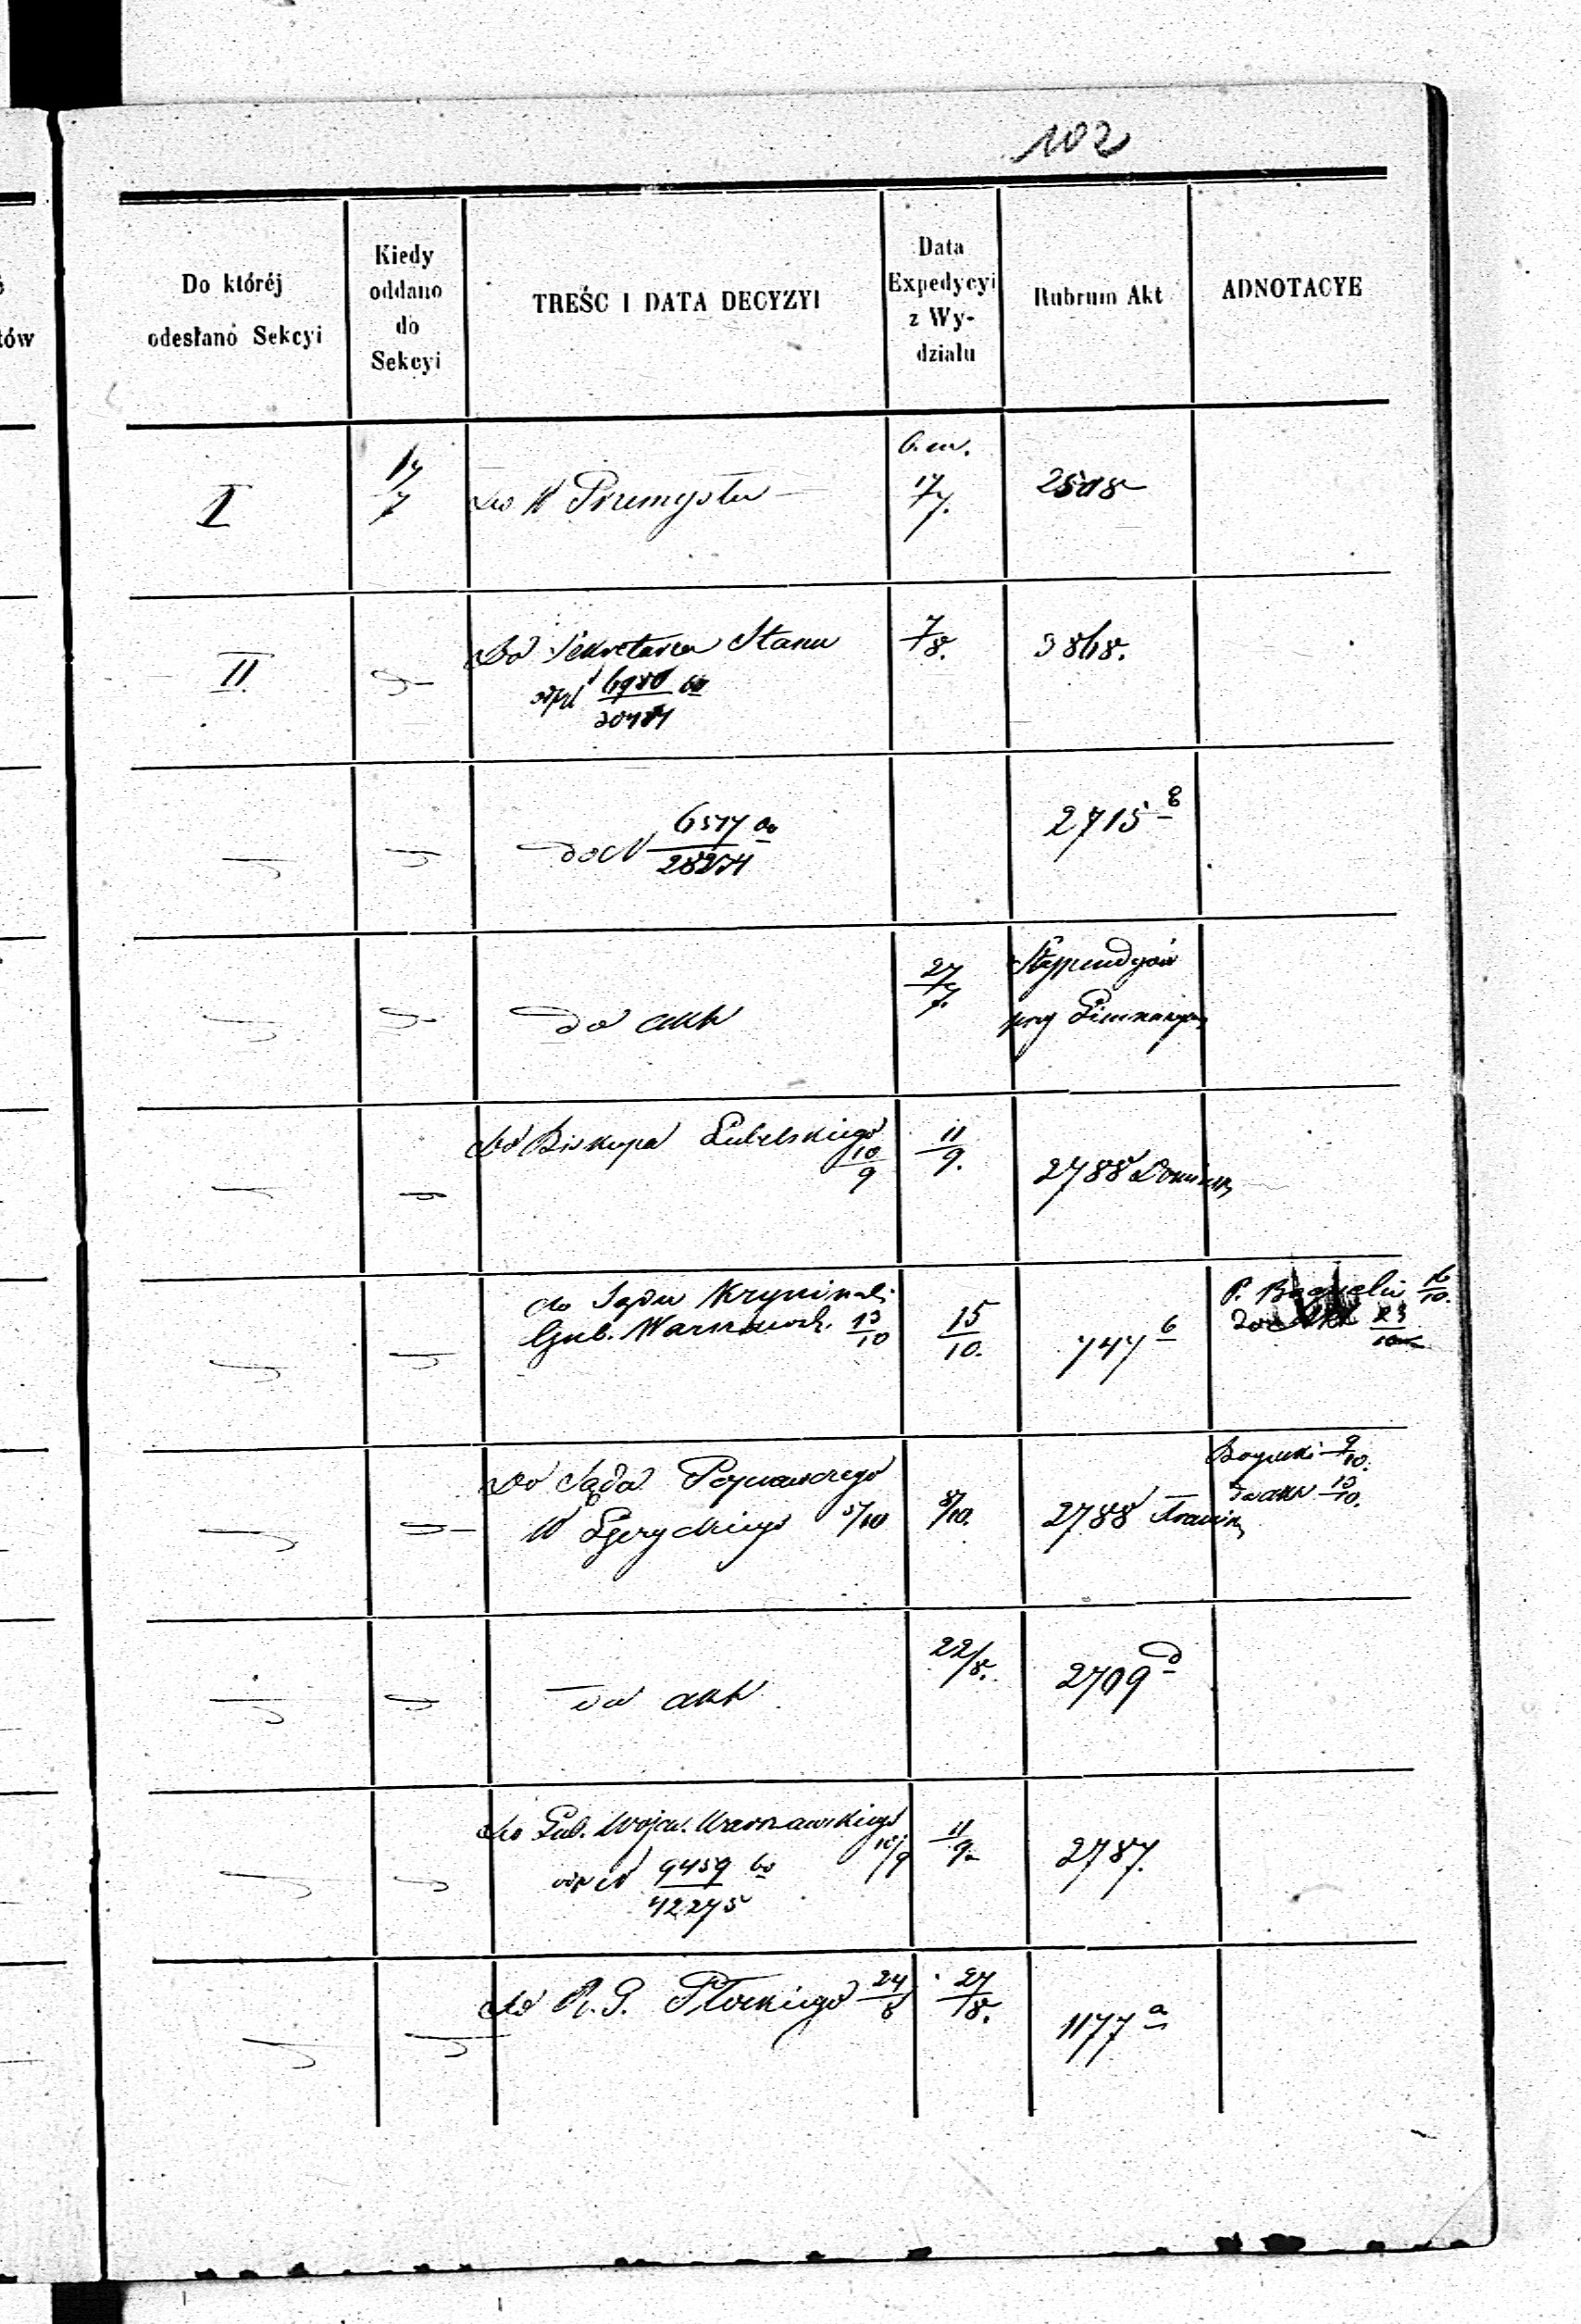 102
Do któréj
odesłano Sekcyi
Kiedy
oddano
do
Sekcyi
TREŚC I DATA DECYZYI
Data
Expedycyi
z Wy-
działu
Rubrum Akt
ADNOTACYE
I
17/7
do W Przemysłu
17/7.
2508
II
Do Sekretarza Stanu
6980/30484
7/8.
3868.
do N 6577/28274
2715
do akt
27/7.
Stypendyów
przy Gimnazyum
do Biskupa Lubelskiego
10/9
11/9.
2788 Domin
do Sądu Kryminal:
Gub. Warszawsk. 13/10
15/10.
747 b
P. 16/10.
23/10
Do Sądu Poprawczego
W Łęczyckiego 5/10
8/10.
2788
9/10.
do akt 13/10.
do akt
22/8.
2709 d
do Gub. Wojew. Warszawskiego
10/9
N 9459/42275
11/9
2787.
do R. G. Płockiego 24/8
27/8.
1177 a